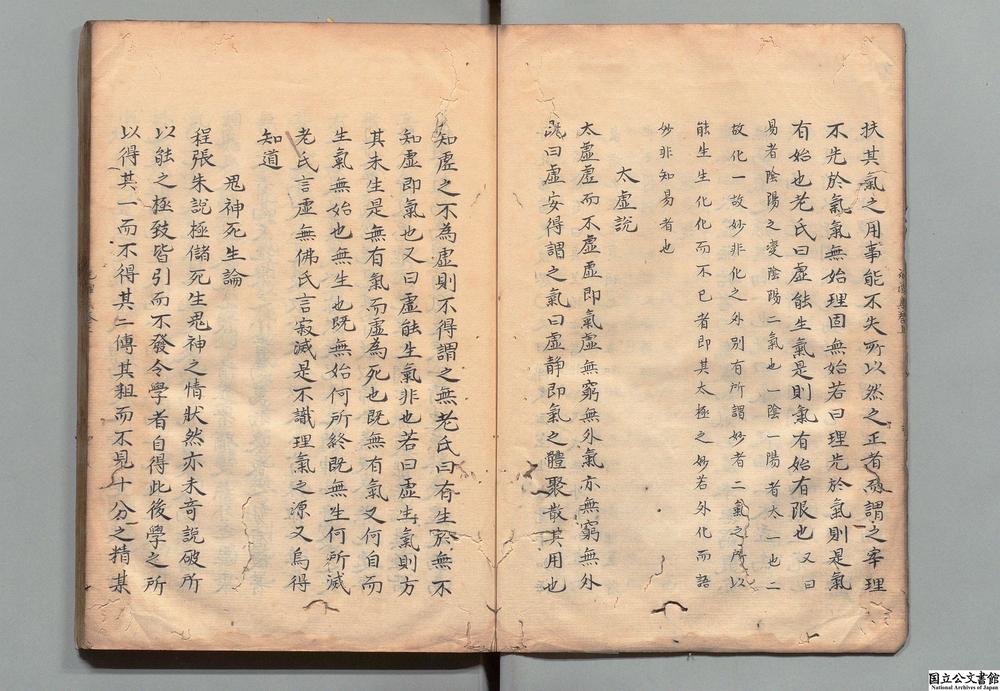 扶其氣之用事能不失所以然之正者而謂之宰理
不先於氣氣無始理固無始若曰理先於氣則是氣
有始也老氏曰虛能生氣是則氣有始有限也又曰
易者陰陽之變陰陽二氣也一陰一陽者太一也二
故化一故妙非化之外別有所謂妙者二氣之所以
能生生化化而不已者即其太極之妙若外化而語
妙非知易者也
太虛說
太虛虛而不虛虛即氣虛無窮無外氣亦無窮無外
既曰虛安得謂之氣曰虛靜即氣之體聚散其用也
知虛之不為虛則不得謂之無老氏曰有生於無不
知虛即氣也又曰虛能生氣非也若曰虛生氣則方
其未生是無有氣而虛為死也既無有氣又何自而
生氣無始也無生也既無始何所終既無生何所滅
老氏言虛無佛氏言寂滅是不識理氣之源又烏得
知道
鬼神死生論
程張朱說極儲死生鬼神之情狀然亦未竒說破所
以能之極致皆引而不發令學者自得此後學之所
以得其一而不得其二傳其粗而不見十分之精某
国立公文書館
National Archives of Japan